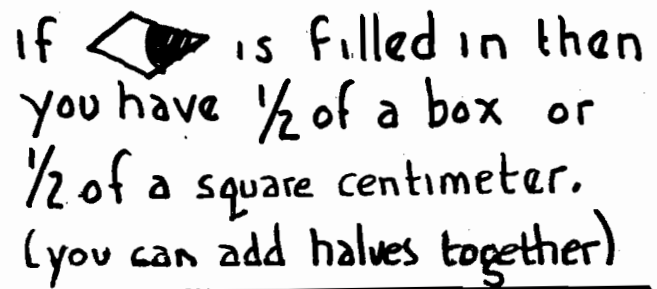 If is filled in then
you have 1/2 of a box or
1/2 of a square centimeter.
(you can add halves together)